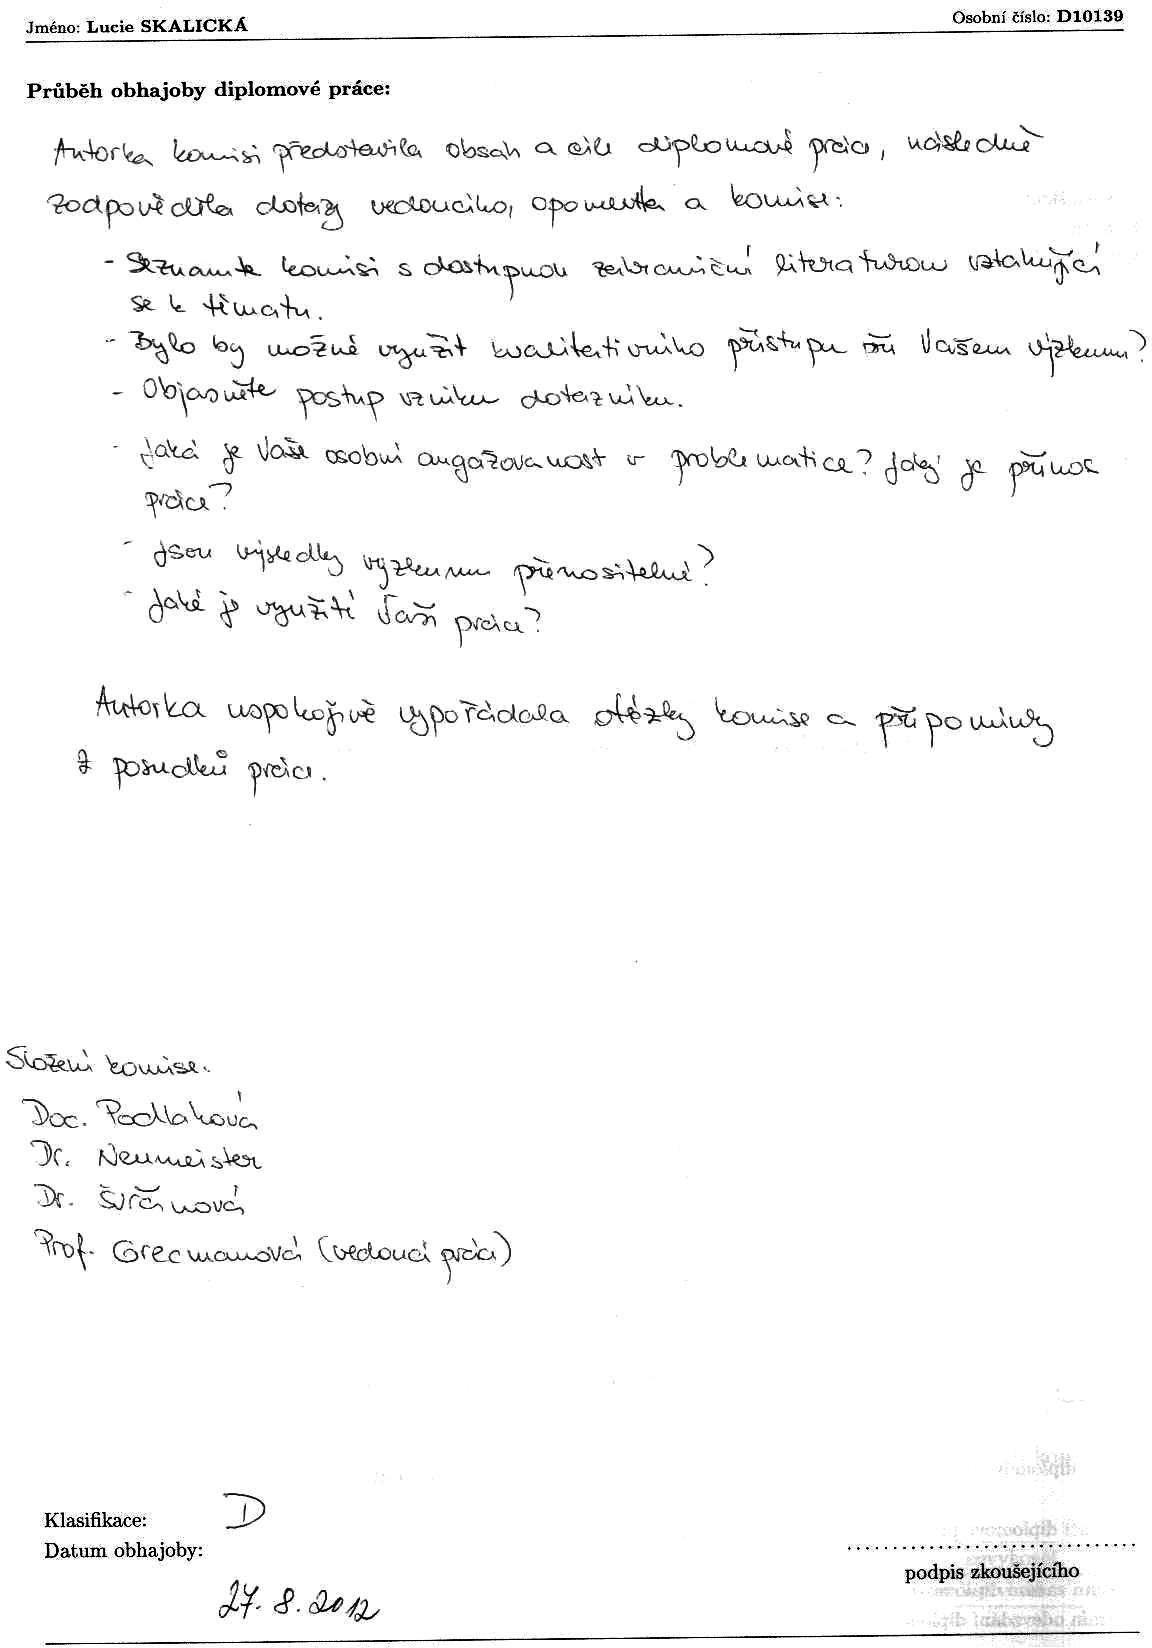 Jméno: Lucie SKALICKÁ
Osobní číslo: D10139
Průběh obhajoby diplomové práce:
Autorka komisi představila obsah a cíle diplomové práce, následně
zodpověděla dotazy vedoucího, oponenta a komise:
- Seznamte komisi s dostupnou zahraniční literaturou vztahující
se k tématu.
- Bylo by možné využít kvalitativního přístupu při Vašem výzkumu?
- Objasněte postup vzniku dotazníku.
- Jaká je Vaše osobní angažovanost v problematice? Jaký je přínos
práce?
- Jsou výsledky výzkumu přenositelné?
- Jaké je využití Vaší práce?
Autorka uspokojivě vypořádala otázky komise a připomínky
z posudků práce.
Složení komise:
Doc. Podlahová
Dr. Neumeister
Dr. Švrčinová
Prof. Grecmanová (vedoucí práce)
Klasifikace: D
Datum obhajoby:
27. 8. 2012
podpis zkoušejícího